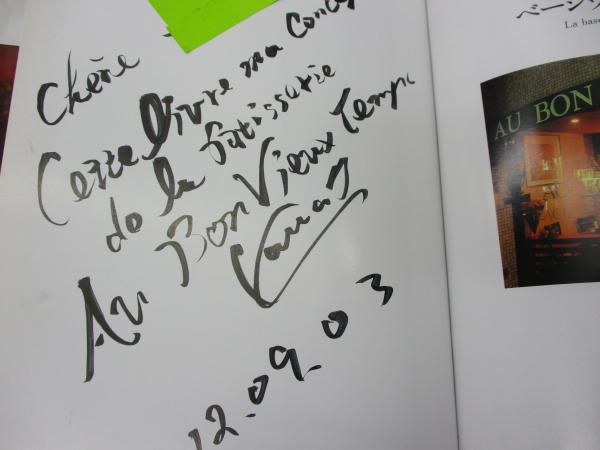 Chérie
Cette livre ma Concep
de la Patisserie
Au Bon Vieux Temps
12.09.03
La base
AU BON